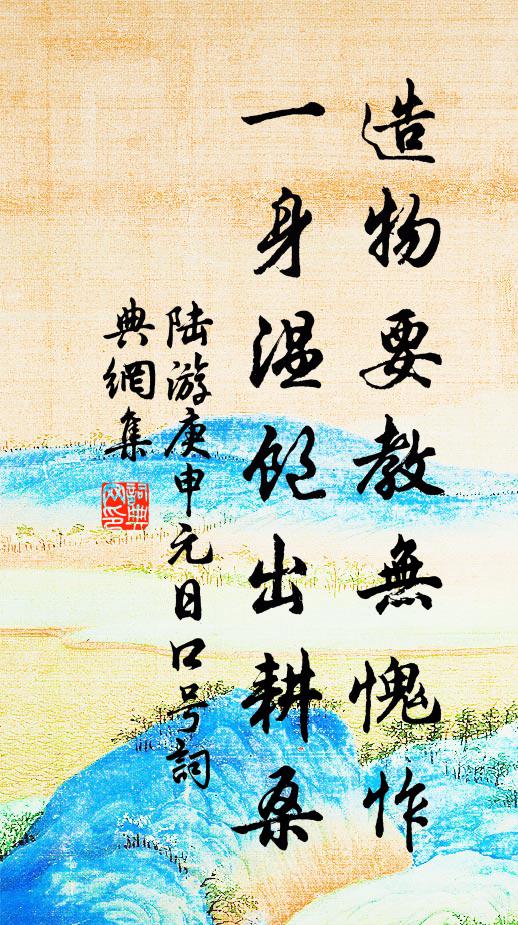 造物要教無愧怍
一身温飽出耕桑
陆游庚申元日口号詞
典網集
詞典
网印